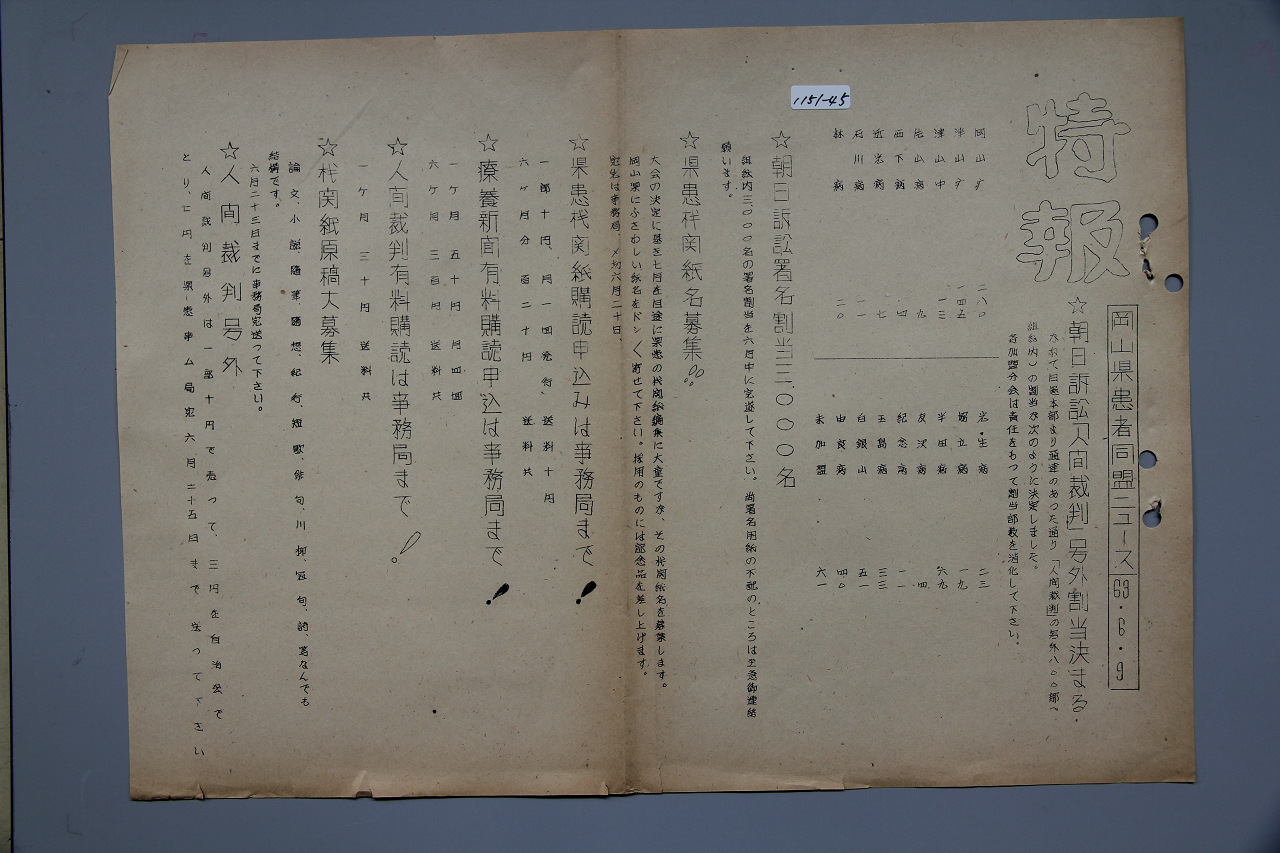 1151-45
特報
岡山県患者同盟ニュース 63・6・9
☆朝日訴訟「人間裁判」号外割当決まる・
日患本部より通達のあった通り「人間裁判」の号外八〇〇部へ
組織内)の割当が次のように決定しました。
各加盟分会は責任をもって割当部数を消化して下さい。
岡山 二八〇
津山 一四五
津山中 一三
九
西下病 四
七
石川病 一一
林病 二〇
二三
一九
半田病 六九
四
紀念病 一一
玉島病 三三
白銀山 五一
由良病 四〇
未加盟 六一
☆朝日訴訟署名割当三・〇〇〇名
組織内三、〇〇〇名の署名割当を六月中に完遂して下さい。尚署名用紙の不配のところは至急御連絡
願います。
☆県患機関紙名募集!!
大会の決定に基き七月を目途に県患の機関紙編集に大童ですが、その機関紙名を募集します。
岡山県にふさわしい紙名をドシ〱寄せて下さい。採用のものには記念品を差し上げます。
宛先は事務局、〆切六月二十日、
☆県患機関紙購読申込みは事務局まで!
一部十円、月一回発行、送料十円
六ヶ月分 百二十円 送料共
☆療養新聞有料購読申込は事務局まで!
一ヶ月 五十円 月四回
六ヶ月 三百円 送料共
☆人間裁判有料購読は事務局まで!
一ヶ月 三十円 送料共
☆機関紙原稿大募集
論文、小説、随筆、随想、紀行、短歌、俳句、川柳、冠句、詩、等なんでも
結構です。
六月二十三日までに事務局宛送って下さい。
☆人間裁判号外
人間裁判号外は一部十円で売って、三円を自治会で
とり、七円を県患事ム局宛六月二十五日まで送って下さい